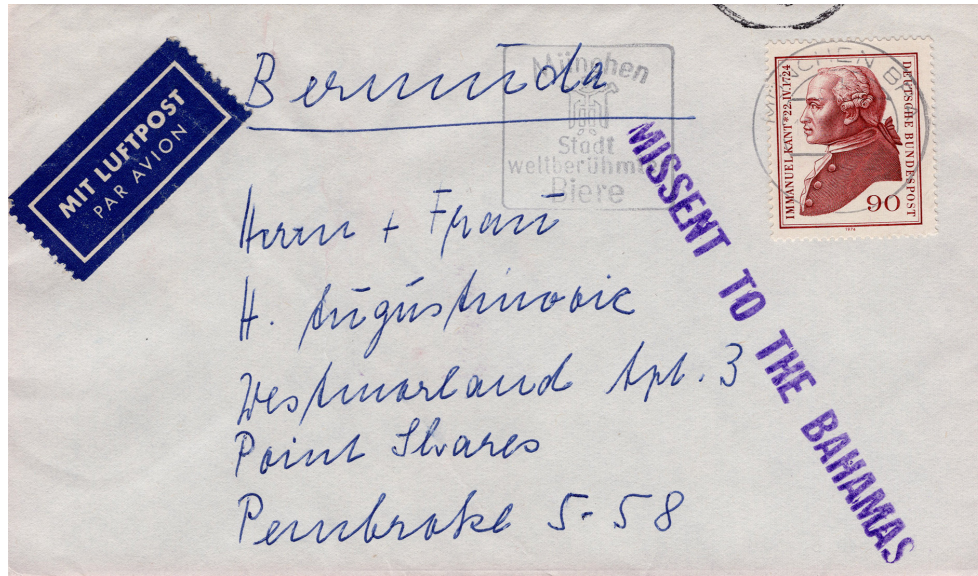 Bermuda
MIT LUFTPOST
PAR AVION
München
Stadt
weltberühmter
Biere
MÜNCHEN BP
IMMANUEL KANT *22.IV.1724
DEUTSCHE BUNDESPOST
90
1974
MISSENT TO THE BAHAMAS
Herrn + Frau
H. Augustinovic
Westmorland Apt. 3
Point Shares
Pembroke 5-58